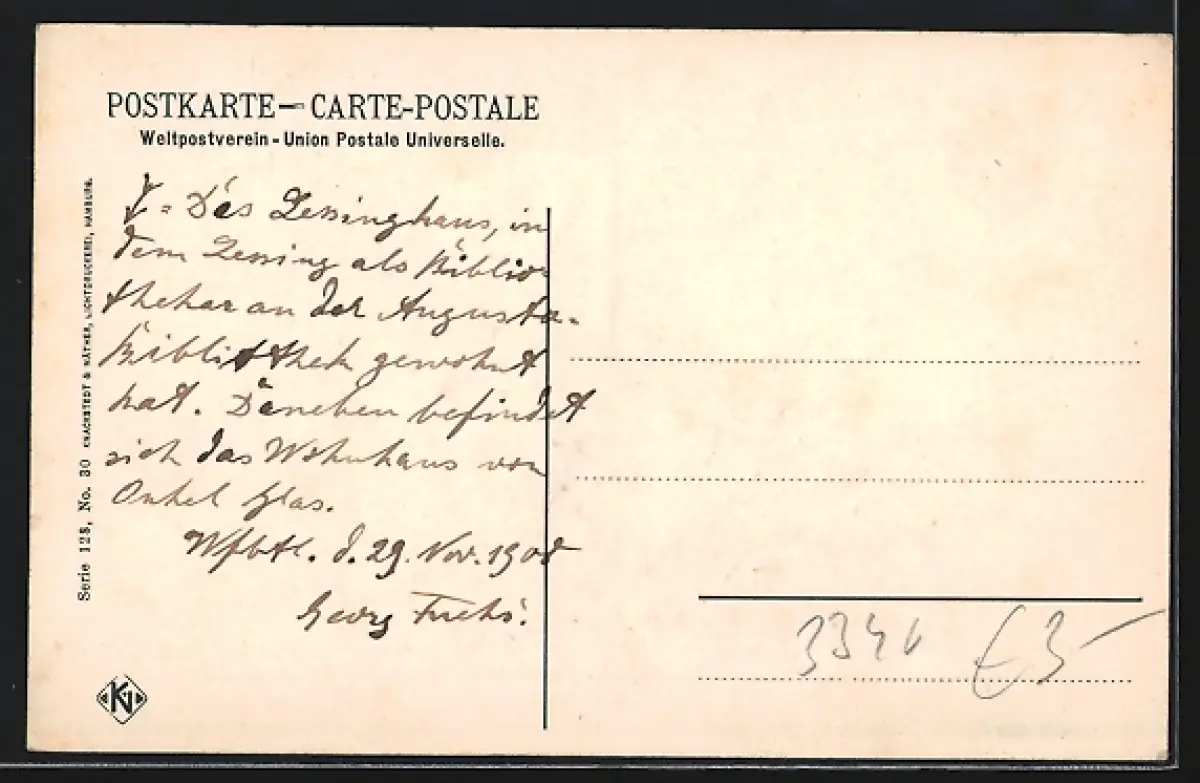 POSTKARTE – CARTE-POSTALE
Weltpostverein - Union Postale Universelle.
Das Lessinghaus, in
dem Lessing als Biblio-
thekar an der Augusta-
Bibliothek gewohnt
hat. Daneben befindet
sich das Wohnhaus von
Onkel Glas.
Wfbttl. d. 29. Nov. 1908
Georg Fuchs.
Serie 128, No. 30 KNACKSTEDT & NÄTHER, LICHTDRUCKEREI, HAMBURG.
KN
€ 3-